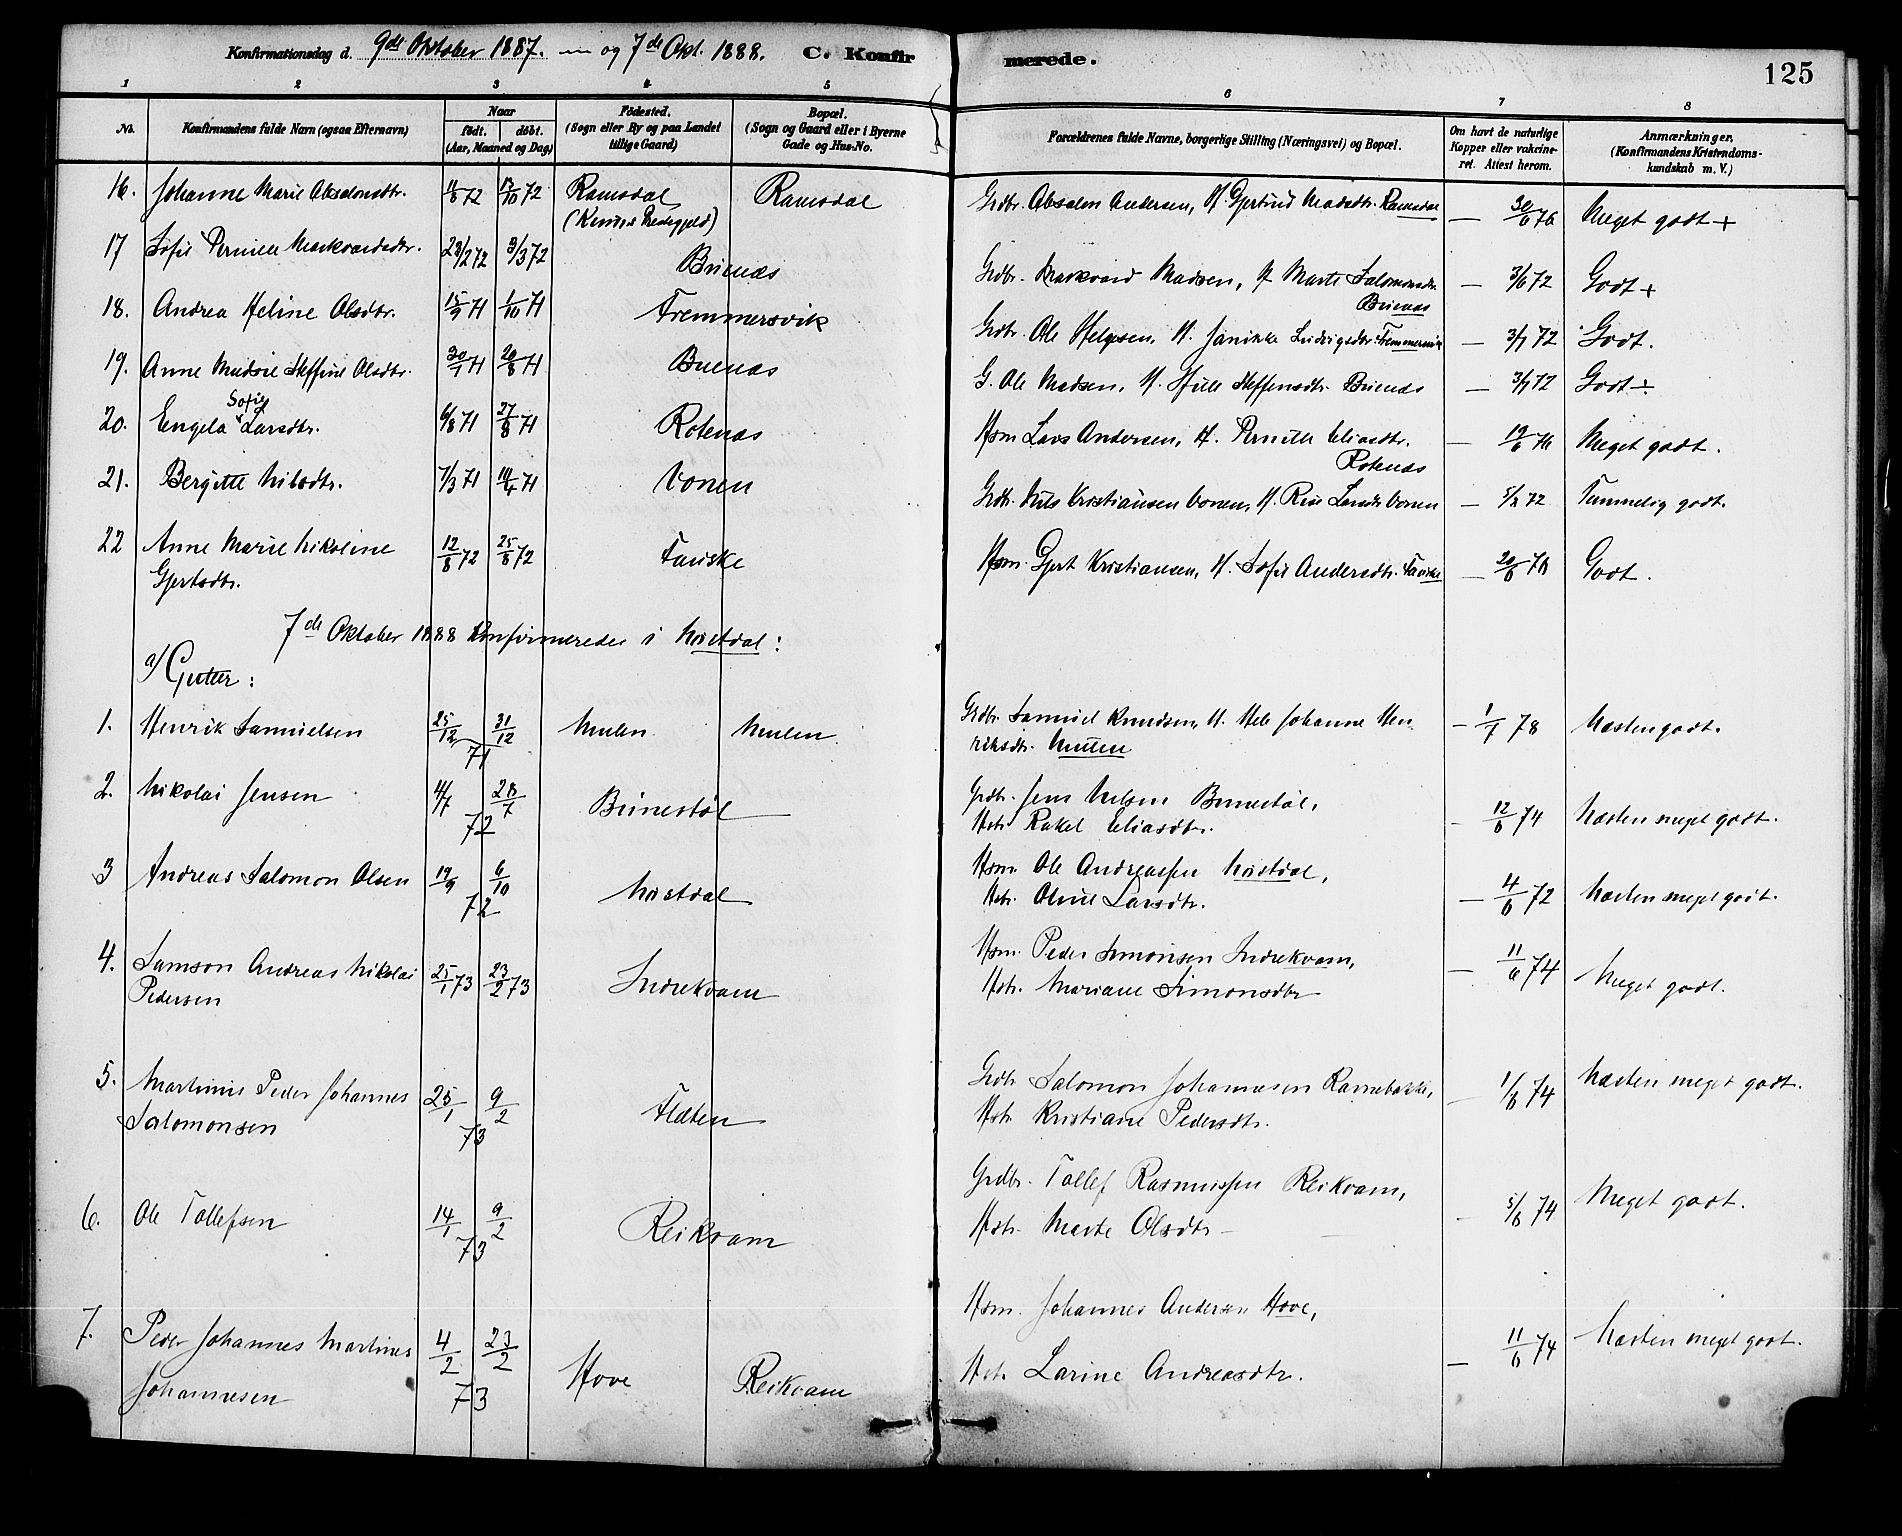 Konfirmationsdag d. 9de Oktober 1887. og 7de Okt. 1888. C. Konfirmerede. 125
1 2 3 4 5 6 7 8
No. Konfirmandens fulde Navn (ogsaa Efternavn) Naar födt. döbt. (Aar, Maaned og Dag) Födested. (Sogn eller By og paa Landet tillige Gaard) Bopæl. (Sogn og Gaard eller i Byerne Gade og Hus-No. Forældrenes fulde Navne, borgerlige Stilling (Næringsvei) og Bopæl. Om havt de naturlige Kopper eller vakcineret. Attest herom. Anmærkninger, (Konfirmandens Kristendomskundskab m. V.)
16. Johanne Marie Absalonsdtr. 72 72 Ramsdal Ramsdal Grdbr. Absalon Andersen, H. Gjertrud Madsdtr. Ramsdal — 30/6 76 Meget godt +
17 Sofie Pernille Markvardsdtr. 28/2 72 3/3 72 Buenæs Grdbr. Markvard Madsen, H. Marte Salomonsdtr. — 3/6 72 Godt +
Buenæs
18. Andrea Heline Olsdtr. 15/9 71 1/10 71 Tremmersvik Grdbr. Ole Helgesen, H. Janikke Ludvigsdtr. Tremmersvik — 3/7 72 Godt.
19. Anne Steffine Olsdtr. 30/7 71 20/8 71 Buenæs G. Ole Madsen, H. Steffensdtr. Buenæs — 3/7 72 Godt ÷
20. Engela Sofie Larsdtr. 6/8 71 27/8 71 Rotenæs Hsm Lars Andersen, H. Pernille Eliasdtr. — 19/6 76 Meget godt.
Rotenæs
21. Bergitte Nilsdtr. 7/3 71 71 Vonen Grdbr. Nils Kristiansen Vonen, H. Larsdtr Vonen — 72 Temmelig godt.
22 Anne Marie Nikoline 12/8 72 25/8 72 Tauske Hsm. Gjert Kristiansen, H. Sofie Andersdtr. Tauske — 20/6 76 Godt.
Gjertsdtr.
7de Oktober 1888 Konfirmerede i Nostdal:
a/ Gutter:
1. Henrik Samuelsen 25/12 31/12 71 Mulen Mulen. Grdbr. Samuel Knudsen, H. Johanne Hen-
riksdtr. Mulen — 1/7 78 Næsten godt.
2. Nikolai Jensen 4/7 28/7 72 Buneståĺ Grdbr. Jens Nelsen
Hstr. Rakel Eliasdtr. — 12/6 74 Næsten meget godt.
3 Andreas Salomon Olsen 19/9 6/10 72 Nostdal Hsm. Ole Andreassen Nostdal,
Hstr. Oline Larsdtr. — 4/6 72 Næsten meget godt.
4. Samson Andreas Nikolai 25/1 73 23/2 73 Indrekvam Hsm. Peder Simonsen Indrekvam,
Pedersen Hstr. Mariane Simonsdtr — 11/6 74 Meget godt.
5. Martinus Peder Johannes 25/1 9/2 73 Flaten Grdbr Salomon Johannesen Ramebakke,
Salomonsen Hstr Kristiane Pedersdtr. — 74 Næsten meget godt.
6. Ole Tollefsen 14/1 9/2 73 Reikvam Grdbr. Tollef Rasmussen Reikvam,
Hstr. Marte Olsdtr — 5/6 74 Meget godt.
7. Peder Johannes Martinus 4/2 23/2 73 Hove Reikvam Hsm. Johannes Andersen Hove,
Johannesen Hstr. Larine Andreasdtr. — 11/6 74 Næsten meget godt.